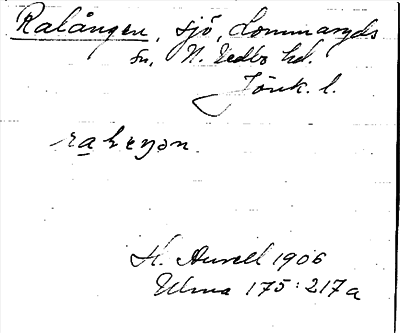 Ralången, sjö, Lommaryds
sn, N. Vedbo hd.
Jönk. l.
H. Aurell 1906
Ulma 175:217a